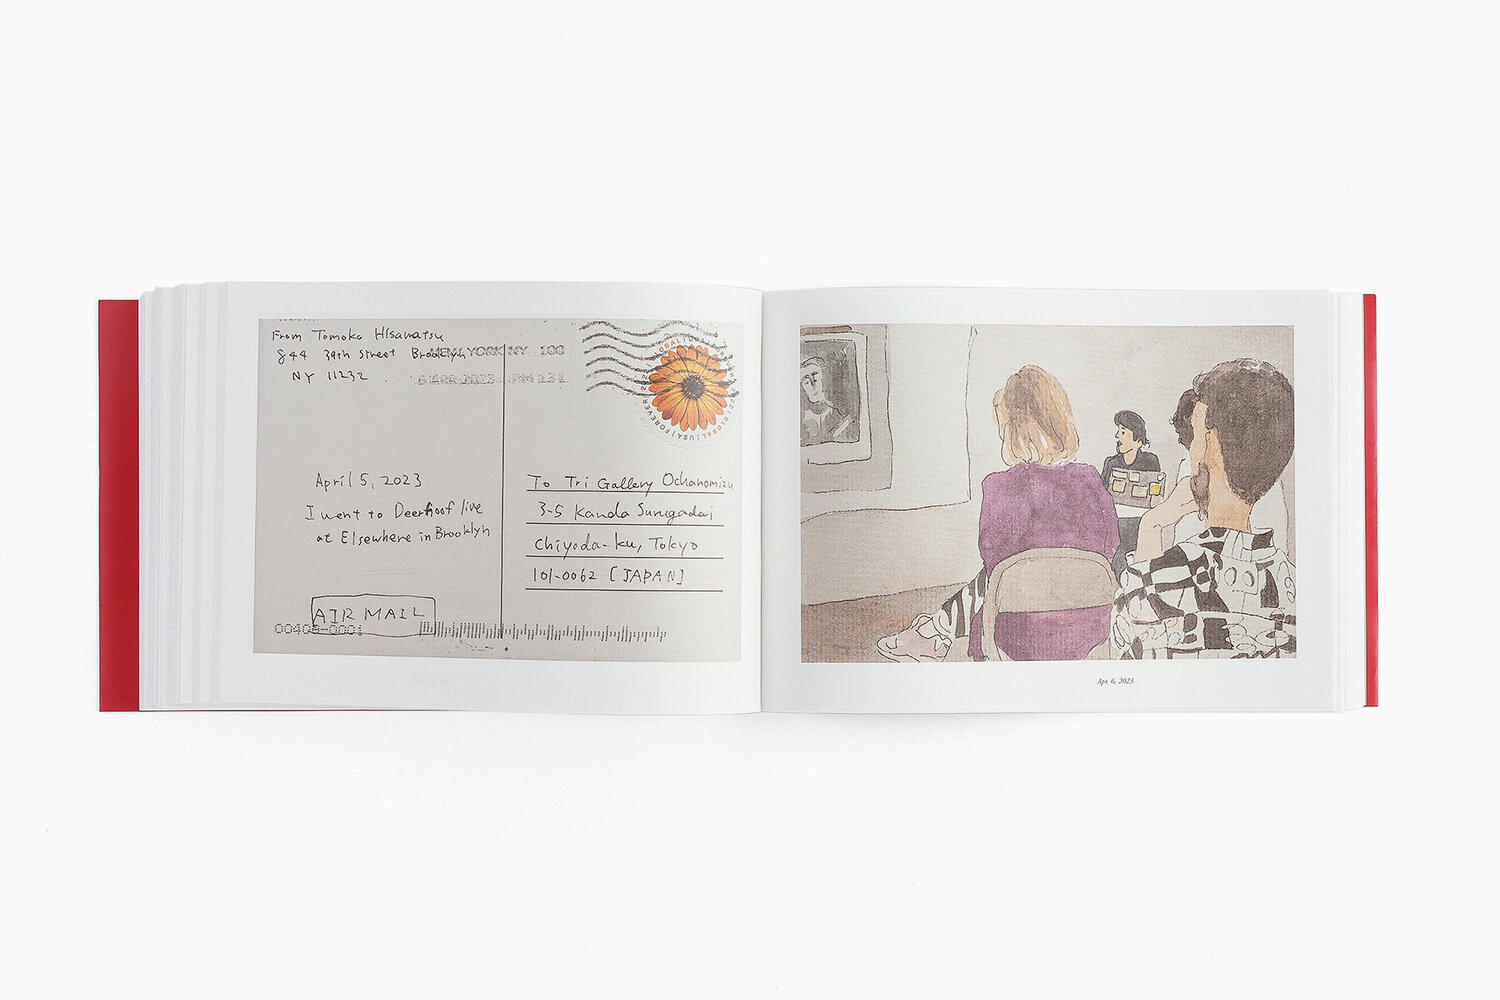 From Tomoko Hisamatsu
844 39th Street Brooklyn
NY 11232
NEW YORK NY 100
GLOBAL | USA | FOREVER 2022
April 5, 2023
I went to Deerhoof live
at Elsewhere in Brooklyn
AIR MAIL
00408-0001
To Tri Gallery Ochanomizu
3-5 Kanda Surugadai
Chiyoda-ku, Tokyo
101-0062 [JAPAN]
Apr. 6, 2023